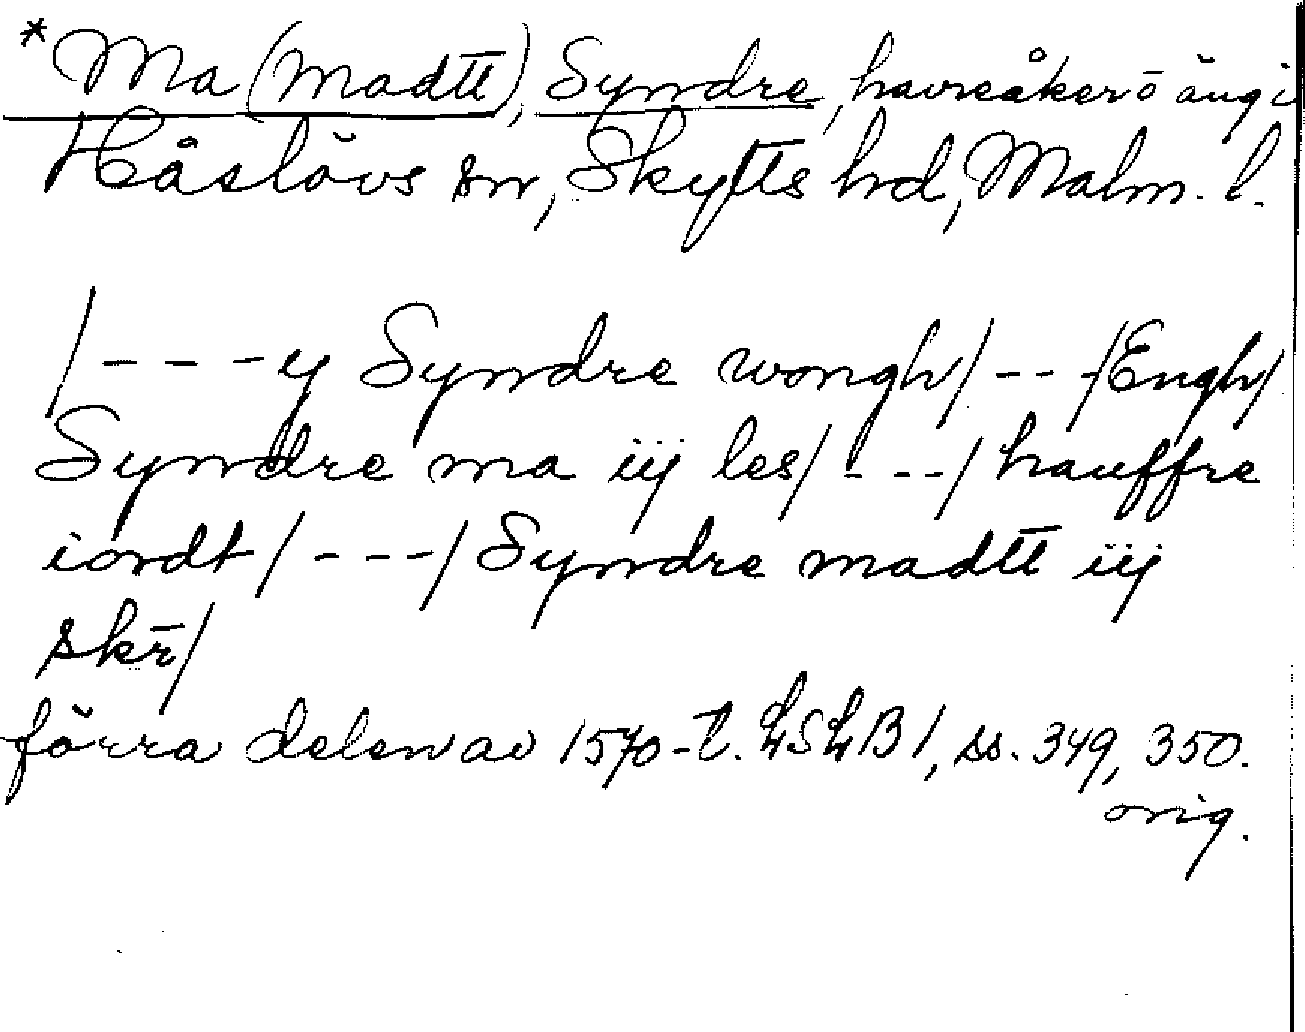 *Ma (madtt), Syndre, havreåker o äng i
Håslövs sn, Skytts hd, Malm. l.
/---y Syndre wongh/---/Engh/
Syndre ma iij les/---/hauffre
iordt/---/Syndre madtt iij
skr̄/
förra delen av 1570-t. LSLB1, ss. 349, 350.
orig.